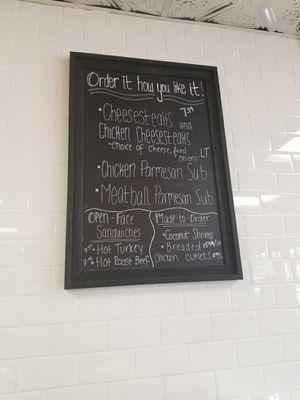 Order it how you like it!
• Cheesesteaks and 7.99
Chicken Cheesesteaks
- choice of cheese, fried onions, LT
• Chicken Parmesan Sub
• Meatball Parmesan Sub
Open-Face
Sandwiches
Hot Turkey
Hot Roast Beef
Made-to-Order
• Coconut Shrimp
• Breaded
Chicken Cutlets